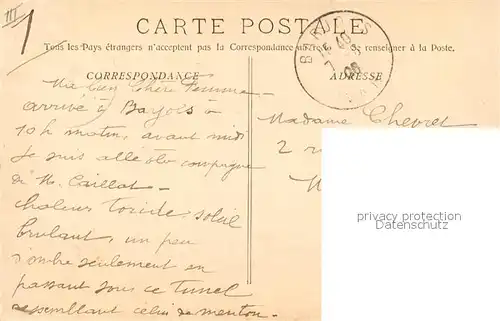 III
CARTE POSTALE
Tous les Pays étrangers n'acceptent pas la Correspondance au recto Se renseigner à la Poste.
CORRESPONDANCE
ADRESSE
Ma bien Chère Femme -
arrivé à
10h matin, avant midi
Je suis allé en compagnie
de M. Caillat -
chaleur toride, soleil
brulant, un peu
d'ombre seulement en
passant sous ce tunel
ressemblant celui de menton.
Madame Chevret
2
privacy protection
Datenschutz